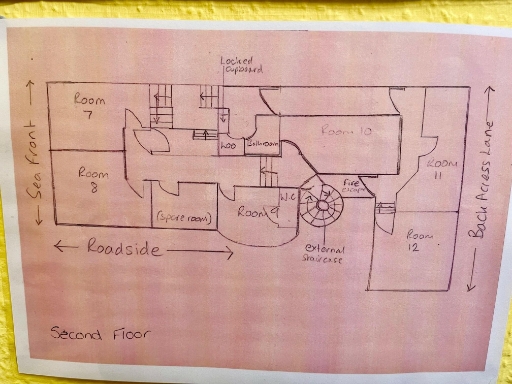 Locked
cupboard
Room
7
Room 10
Loo
Bathroom
Sea Front
Room
8
Room
11
Back Access Lane
Fire
escape
(spare room)
Room 9
W.C
Room
12
Roadside
external
staircase
Second Floor